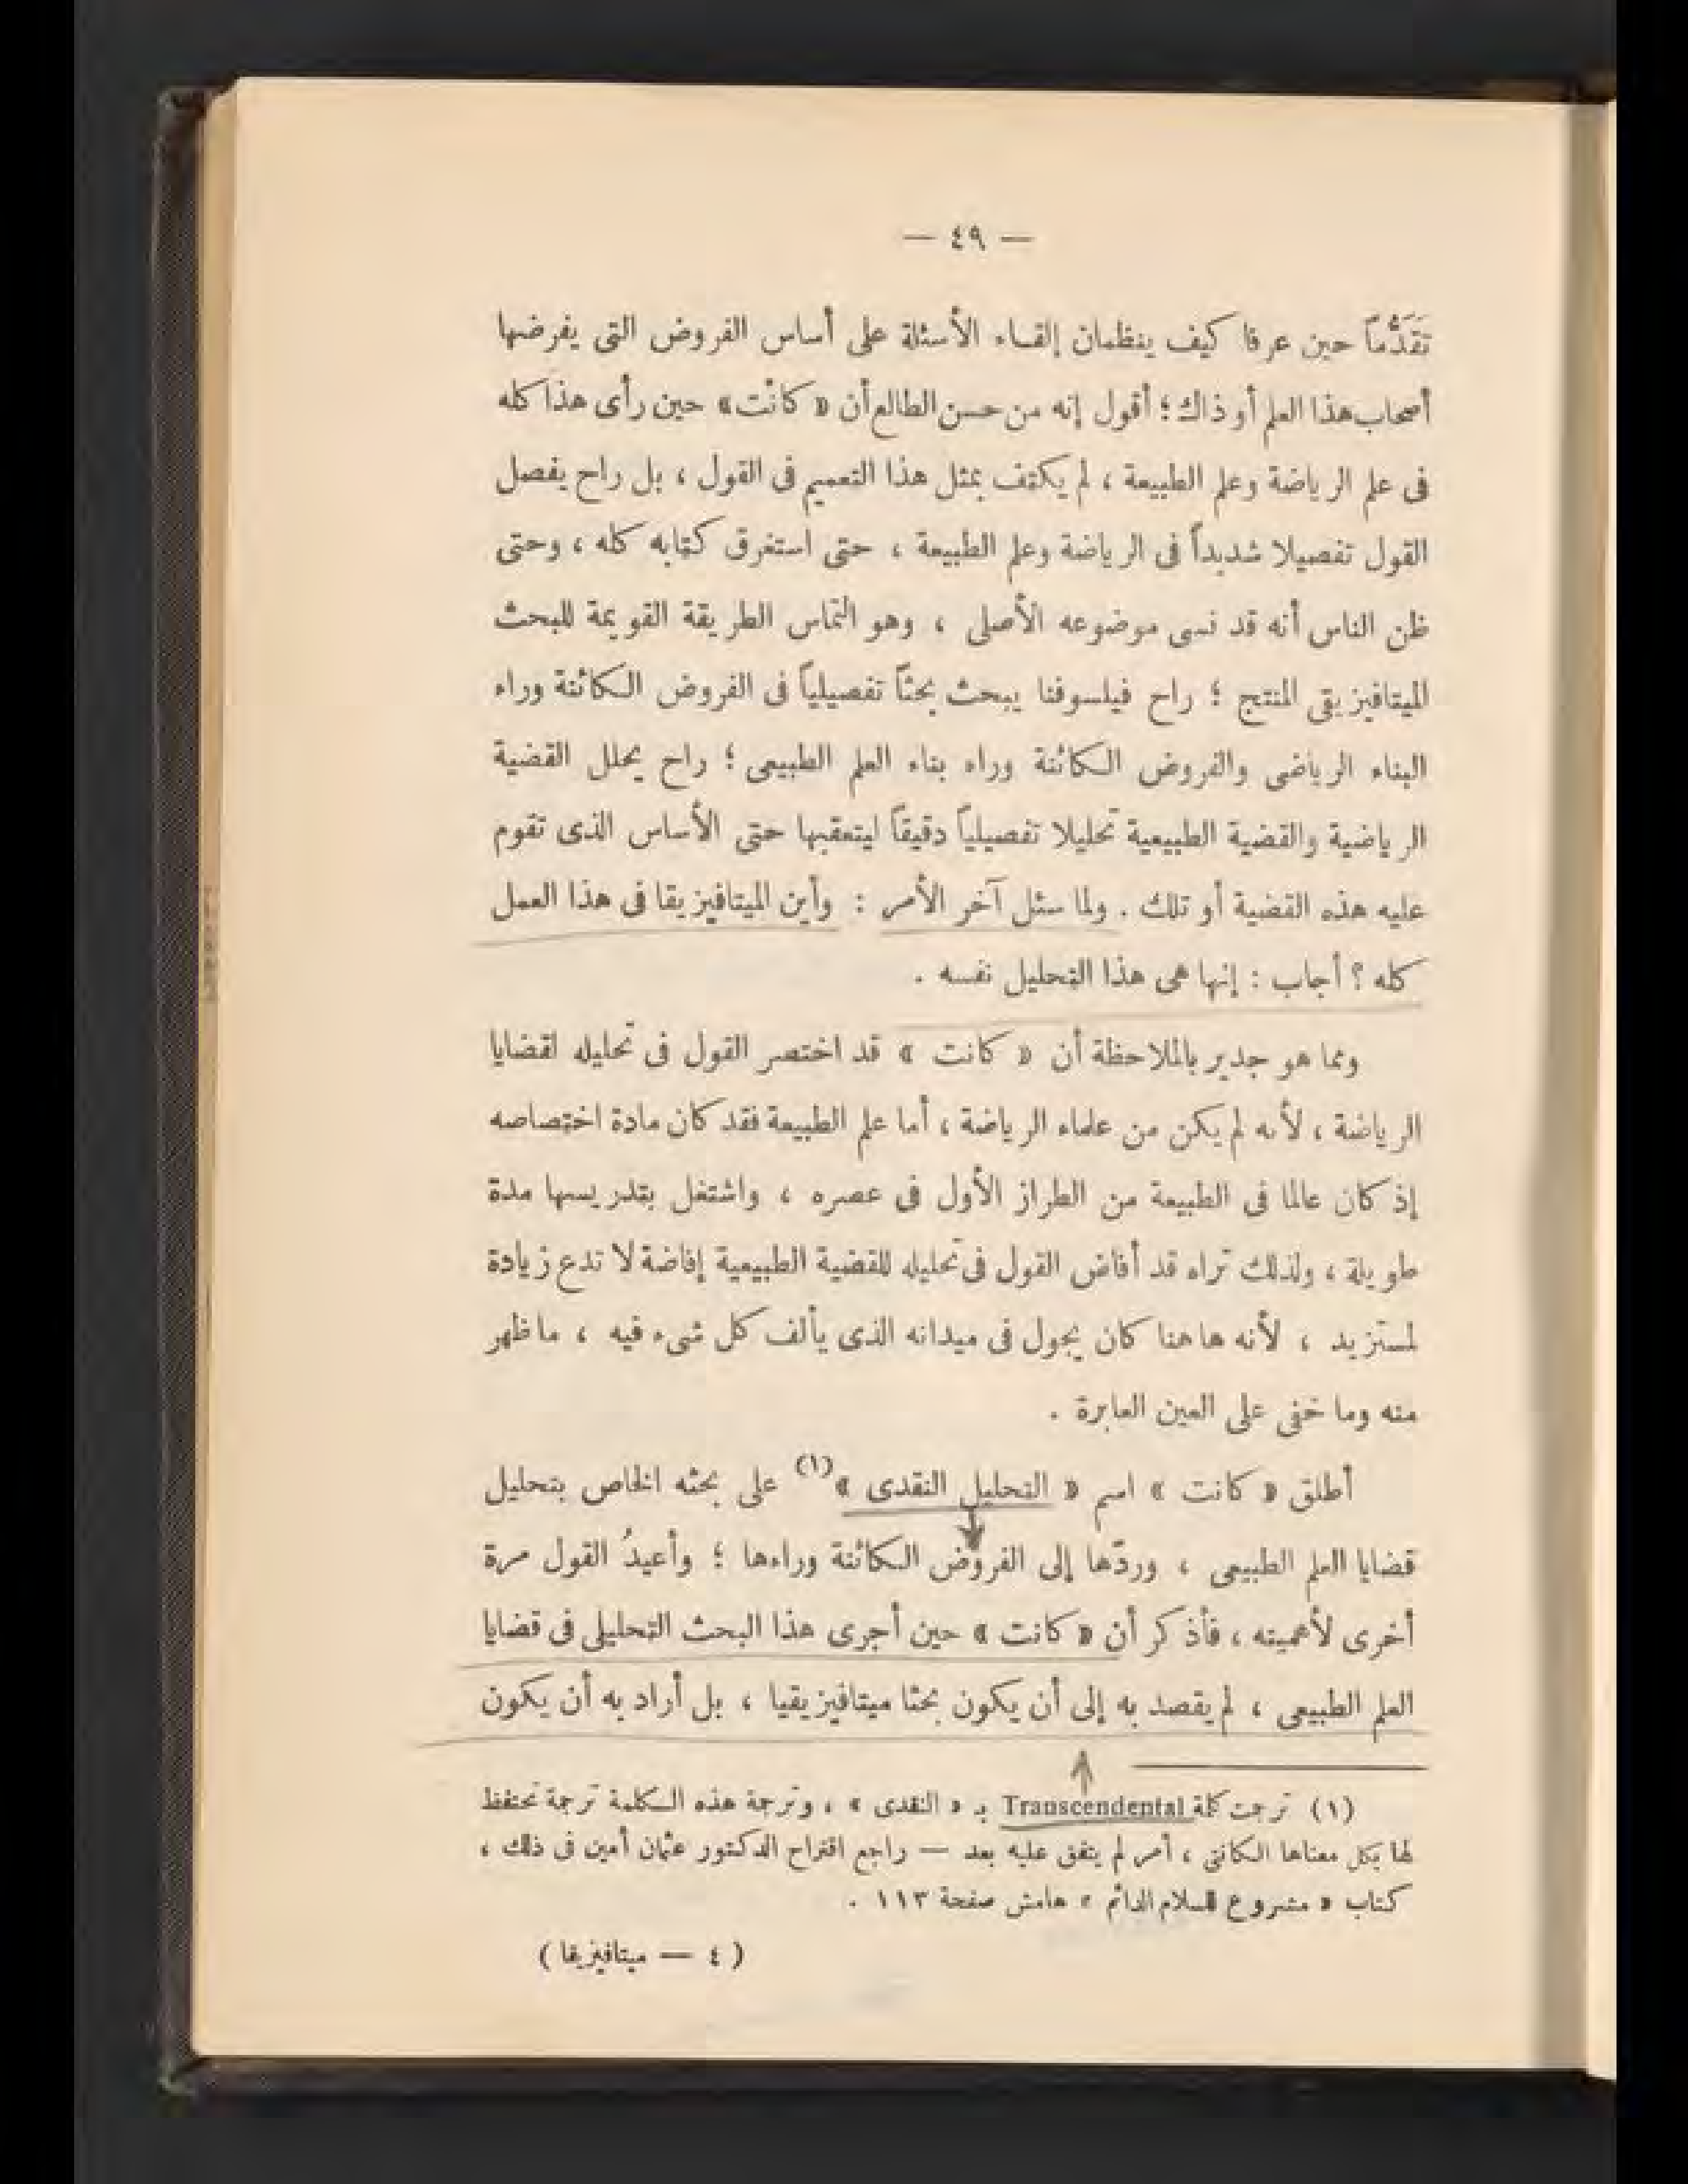 — ٤٩ —
تَقَدُّماً حين عرفا كيف ينظمان إلقاء الأسئلة على أساس الفروض التى يفرضها
أصحاب هذا العلم أو ذاك ؛ أقول إنه من حسن الطالع أن « كانْت » حين رأى هذا كله
فى علم الرياضة وعلم الطبيعة ، لم يكتف بمثل هذا التعميم فى القول ، بل راح يفصل
القول تفصيلا شديداً فى الرياضة وعلم الطبيعة ، حتى استغرق كتابه كله ، وحتى
ظن الناس أنه قد نسى موضوعه الأصلى ، وهو التماس الطريقة القويمة للبحث
الميتافيزيقى المنتج ؛ راح فيلسوفنا يبحث بحثاً تفصيلياً فى الفروض الكائنة وراء
البناء الرياضى والفروض الكائنة وراء بناء العلم الطبيعى ؛ راح يحلل القضية
الرياضية والقضية الطبيعية تحليلا تفصيلياً دقيقاً ليتعقبها حتى الأساس الذى تقوم
عليه هذه القضية أو تلك . ولما سئل آخر الأمر : وأين الميتافيزيقا فى هذا العمل
كله ؟ أجاب : إنها هى هذا التحليل نفسه .
ومما هو جدير بالملاحظة أن « كانت » قد اختصر القول فى تحليله لقضايا
الرياضة ، لأنه لم يكن من علماء الرياضة ، أما علم الطبيعة فقد كان مادة اختصاصه
إذ كان عالما فى الطبيعة من الطراز الأول فى عصره ، واشتغل بتدريسها مدة
طويلة ، ولذلك تراه قد أفاض القول فى تحليله للقضية الطبيعية إفاضة لا تدع زيادة
لمستزيد ، لأنه ها هنا كان يجول فى ميدانه الذى يألف كل شىء فيه ، ما ظهر
منه وما خفى على العين العابرة .
أطلق « كانت » اسم « التحليل النقدى »(١) على بحثه الخاص بتحليل
قضايا العلم الطبيعى ، وردّها إلى الفروض الكائنة وراءها ؛ وأعيدُ القول مرة
أخرى لأهميته ، فأذكر أن « كانت » حين أجرى هذا البحث التحليلى فى قضايا
العلم الطبيعى ، لم يقصد به إلى أن يكون بحثا ميتافيزيقيا ، بل أراد به أن يكون
(١) ترجمت كلمة Transcendental بـ « النقدى » ، وترجمة هذه الكلمة ترجمة تحتفظ
لها بكل معناها الكانتى ، أمر لم يتفق عليه بعد — راجع اقتراح الدكتور عثمان أمين فى ذلك ،
كتاب « مشروع للسلام الدائم » هامش صفحة ١١٣ .
( ٤ — ميتافيزيقا )